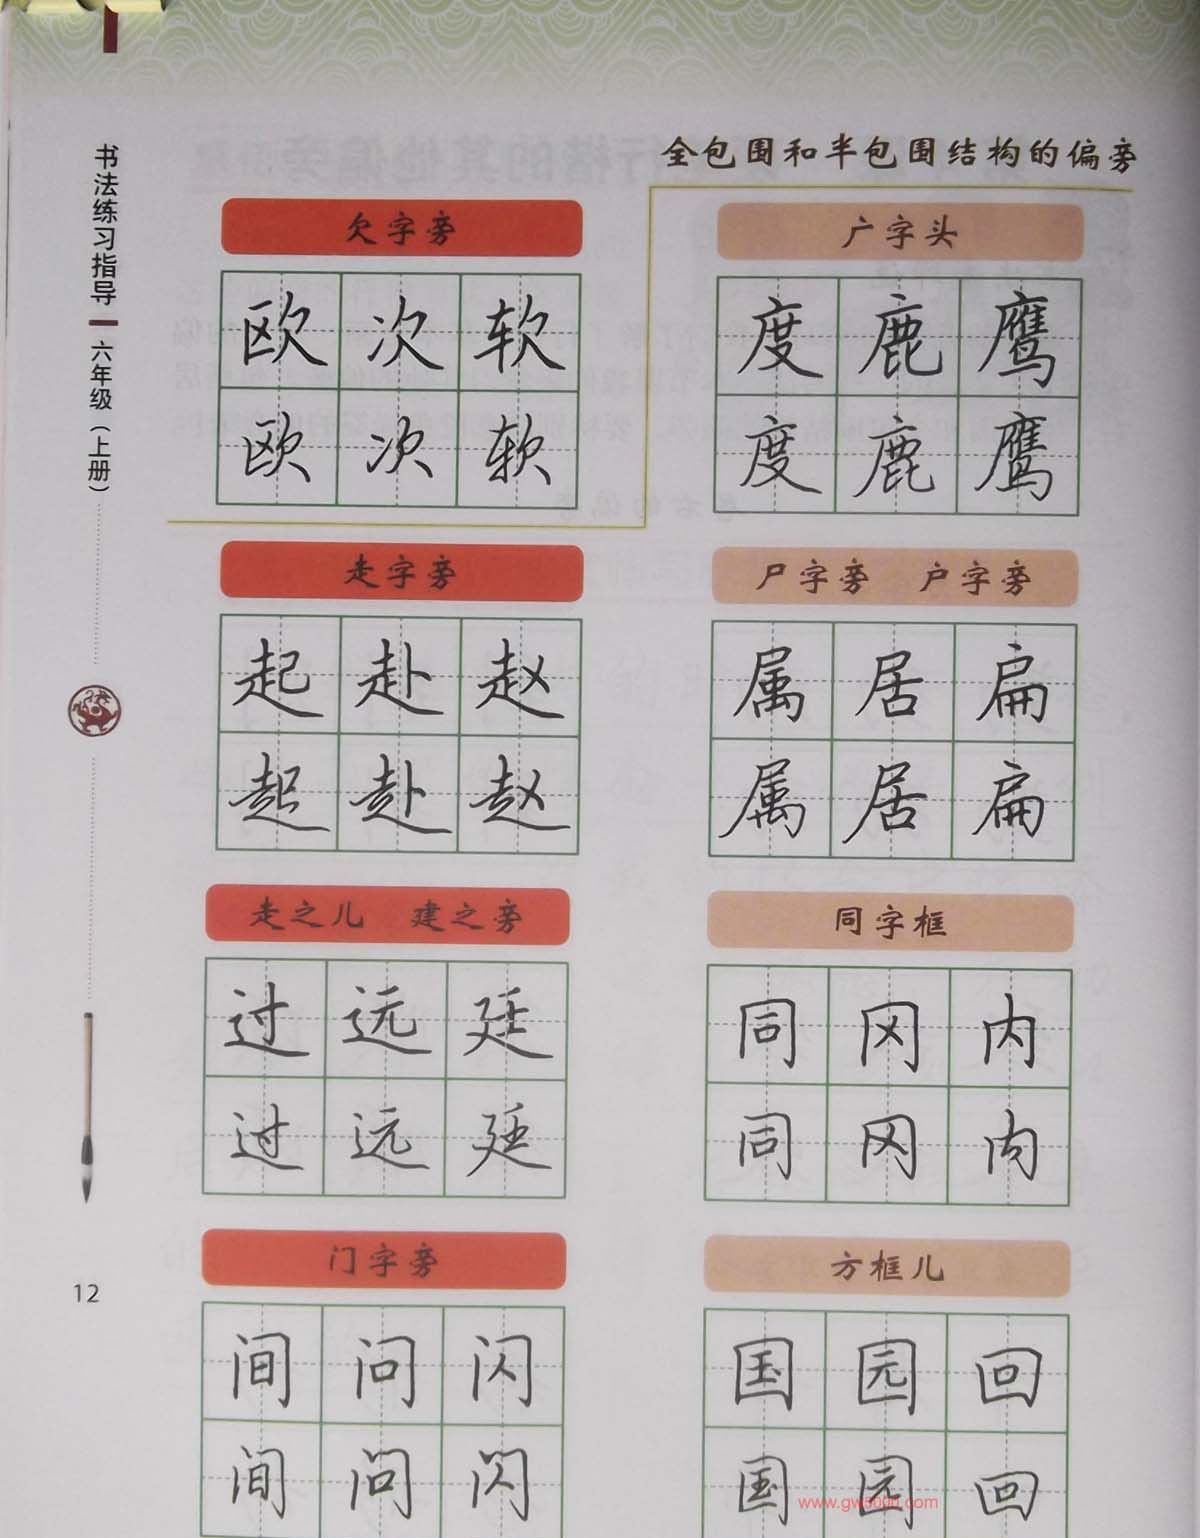 书法练习指导 六年级（上册）
全包围和半包围结构的偏旁
欠字旁
欧次软
欧次软
广字头
度鹿鹰
度鹿鹰
走字旁
起赴赵
起赴赵
尸字旁 户字旁
属居扁
属居扁
走之儿 建之旁
过远廷
过远廷
同字框
同冈内
同冈内
门字旁
间问闪
间问闪
方框儿
国园回
国园回
12